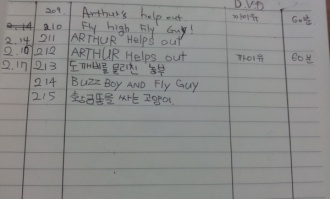 D.V.D
209 Arthur's help out 까이유 60분
2.14 210 Fly high Fly Guy!
2.14 211 ARTHUR Helps out
2.16 212 ARTHUR Helps out 까이유 60분
2.17 213 도깨비를 물리친 농부
214 BUZZ BOY AND FLY GUY
215 황금똥을 싸는 고양이